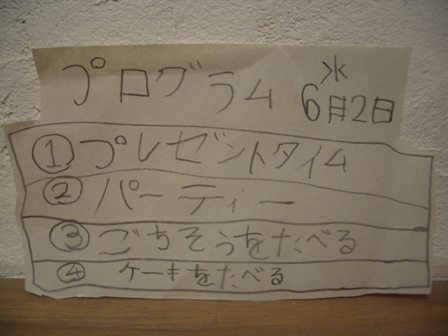 プログラム 水
6月2日
① プレゼントタイム
② パーティー
③ ごちそうをたべる
④ ケーキをたべる